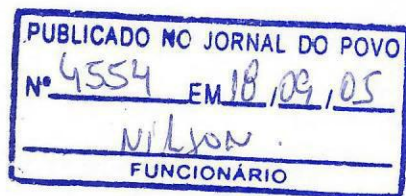 PUBLICADO NO JORNAL DO POVO
Nº 4554 EM 18,09,05
NILSON.
FUNCIONÁRIO